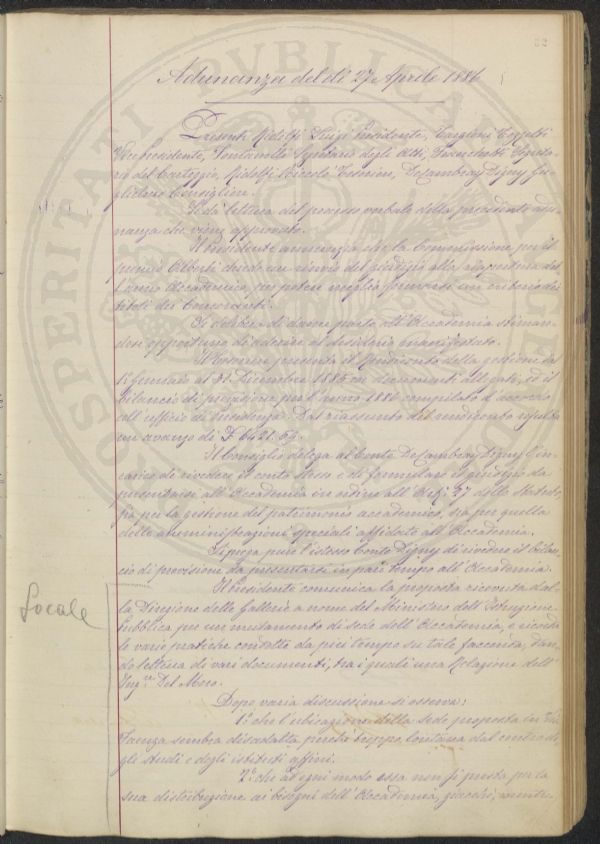 Adunanza del dì 27 Aprile 1886
Presenti Ridolfi Luigi Presidente, Targioni Tozzetti
Vicepresidente, Fontanelli Segretario degli Atti, Franchetti Segreta-
rio del Carteggio, Ridolfi Niccolò Economo, De Cambray Digny Gu-
glielmo Consigliere.
Si dà lettura del processo verbale della precedente adu-
nanza che viene approvato.
Il Presidente annunzia che la Commissione per il
premio Alberti chiede un rinvio del giudizio alla riapertura del
l'anno Accademico, per potere meglio formarsi un criterio dei
titoli dei Concorrenti.
Si delibera di darne parte all'Accademia stiman-
dosi opportuno di aderire al desiderio manifestato.
L'Economo presenta il Rendiconto della gestione dal
1° Gennaio al 31 Dicembre 1885 con documenti allegati, ed il
bilancio di previsione per l'anno 1886 compilato d'accordo
coll'ufficio di Presidenza. Dal riassunto del rendiconto resulta
un avanzo di
Il Consiglio delega al Conte De Cambray Digny l'in-
carico di rivedere il conto stesso e di formulare il giudizio da
presentarsi all'Accademia in ordine all'Art. 27 dello Statuto,
sia per la gestione del patrimonio accademico, sia per quella
delle amministrazioni speciali affidate all'Accademia.
Si prega pure l'istesso Conte Digny di rivedere il bilan-
cio di previsione da presentarsi in pari tempo all'Accademia.
Locale
Il Presidente comunica la proposta ricevuta dal-
la Direzione delle Gallerie a nome del Ministero dell'Istruzione
Pubblica per un mutamento di sede dell'Accademia, e ricorda
le varie pratiche condotte da più tempo su tale faccenda, dan-
do lettura di vari documenti, tra i quali una Relazione dell'
Ing.re Del Moro.
Dopo varia discussione si osserva:
1° che l'ubicazione della sede proposta in Via
Faenza sembra disadatta perchè troppo lontana dal centro de-
gli studi e degli istituti affini.
2° che ad ogni modo essa non si presta per la
sua distribuzione ai bisogni dell'Accademia, giacchè, mentre